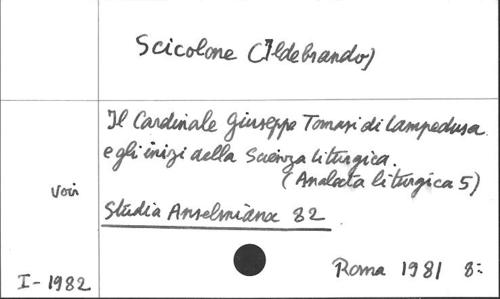 Scicolone (Ildebrando)
Il Cardinale Giuseppe Tomasi di Lampedusa
e gli inizi della Scienza liturgica.
(Analecta liturgica 5)
voir
Studia Anselmiana 82
Roma 1981 8:
I-1982